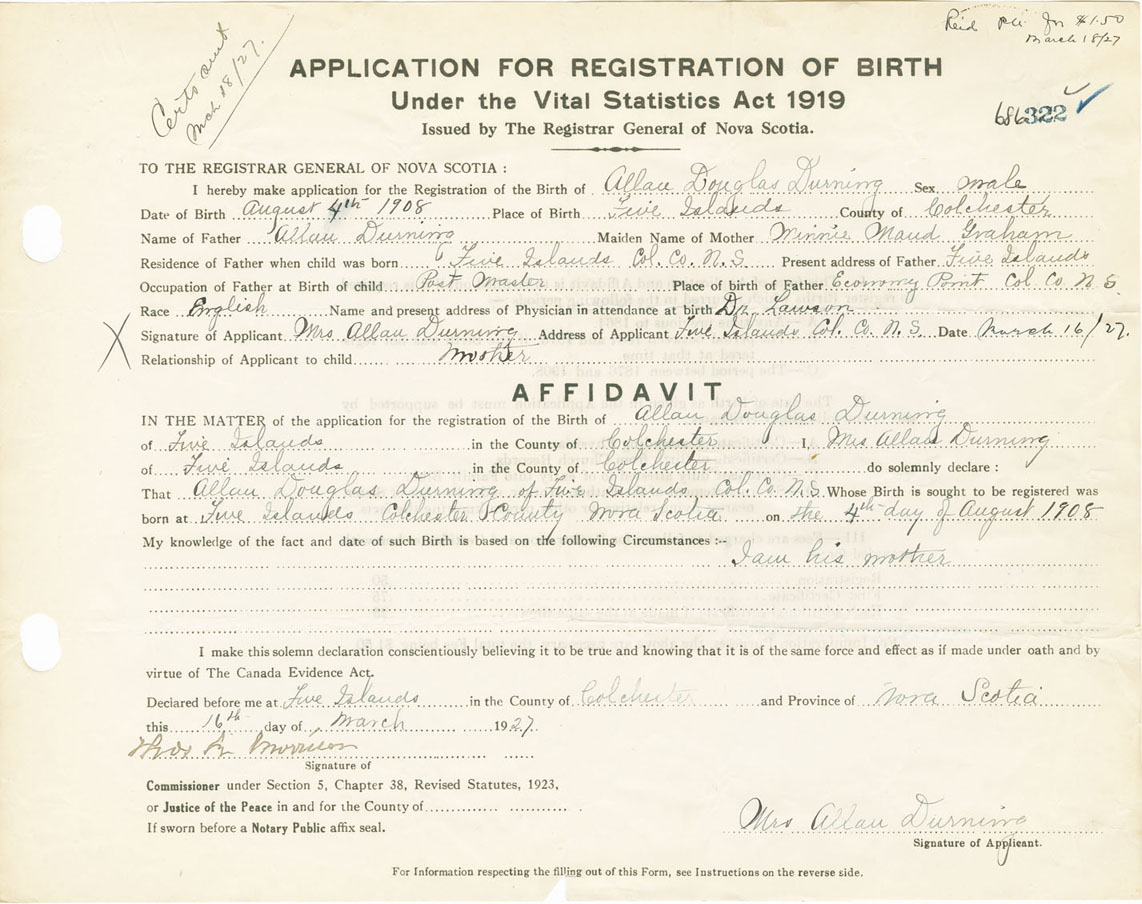 Certs sent
Mch 18/27.
Reid P.M. for $1.50
March 18/27
APPLICATION FOR REGISTRATION OF BIRTH
Under the Vital Statistics Act 1919
Issued by The Registrar General of Nova Scotia.
686322
TO THE REGISTRAR GENERAL OF NOVA SCOTIA :
I hereby make application for the Registration of the Birth of Allan Douglas Durning Sex male
Date of Birth August 4th 1908 Place of Birth Five Islands County of Colchester
Name of Father Allan Durning Maiden Name of Mother Minnie Maud Graham
Residence of Father when child was born Five Islands Col. Co. N. S. Present address of Father Five Islands
Occupation of Father at Birth of child Post Master Place of birth of Father Economy Point Col. Co N. S.
Race English Name and present address of Physician in attendance at birth Dr Lawson
X Signature of Applicant Mrs Allan Durning Address of Applicant Five Islands Col. Co. N. S. Date March 16/27.
Relationship of Applicant to child Mother
AFFIDAVIT
IN THE MATTER of the application for the registration of the Birth of Allan Douglas Durning
of Five Islands in the County of Colchester I, Mrs Allan Durning
of Five Islands in the County of Colchester do solemnly declare :
That Allan Douglas Durning of Five Islands Col. Co. N. S. Whose Birth is sought to be registered was
born at Five Islands Colchester County Nova Scotia on the 4th day of August 1908
My knowledge of the fact and date of such Birth is based on the following Circumstances :--
I am his mother
I make this solemn declaration conscientiously believing it to be true and knowing that it is of the same force and effect as if made under oath and by
virtue of The Canada Evidence Act.
Declared before me at Five Islands in the County of Colchester and Province of Nova Scotia
this 16th day of March 1927.
Morrison
Signature of
Commissioner under Section 5, Chapter 38, Revised Statutes, 1923,
or Justice of the Peace in and for the County of
If sworn before a Notary Public affix seal.
Mrs Allan Durning
Signature of Applicant.
For Information respecting the filling out of this Form, see Instructions on the reverse side.